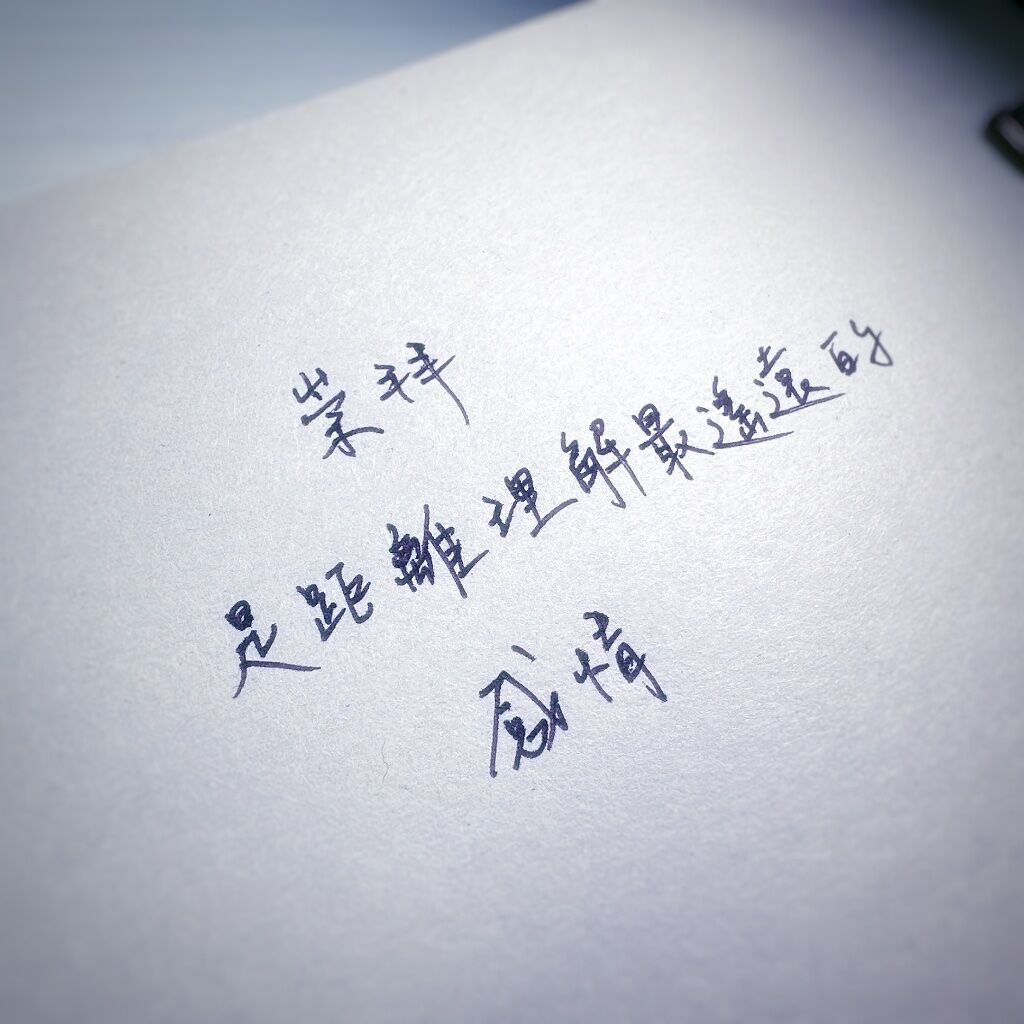 崇拜
是距離理解最遙遠的
感情